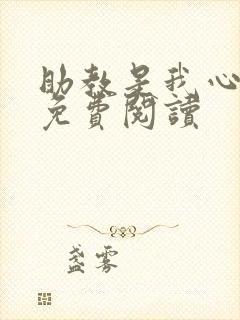 助教是我心
免費閱讀
盞雾